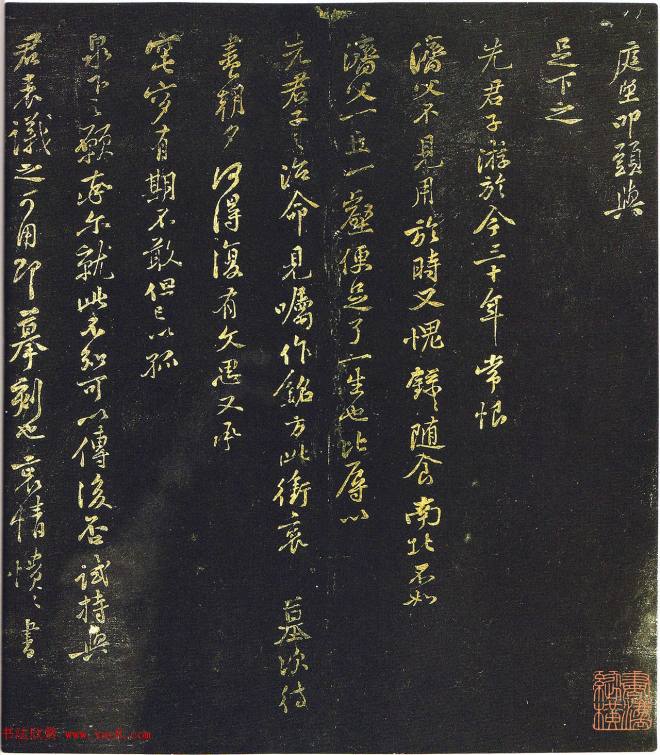 庭坚叩頭与
足下之
先君子游於今三十年常恨
濟父不見用於時又愧録録随食南北不如
濟父一丘一壑便足了一生也比辱以
先君子之治命見嘱作銘方此銜哀 墓次待
盡朝夕何得復有文思又承
窀穸有期不敢但已以孤
泉下之願茲尔就此不知可以傳後否試持與
君表議之可用即摹刻也哀情憒憒書
書法欣赏 www.yac8.com